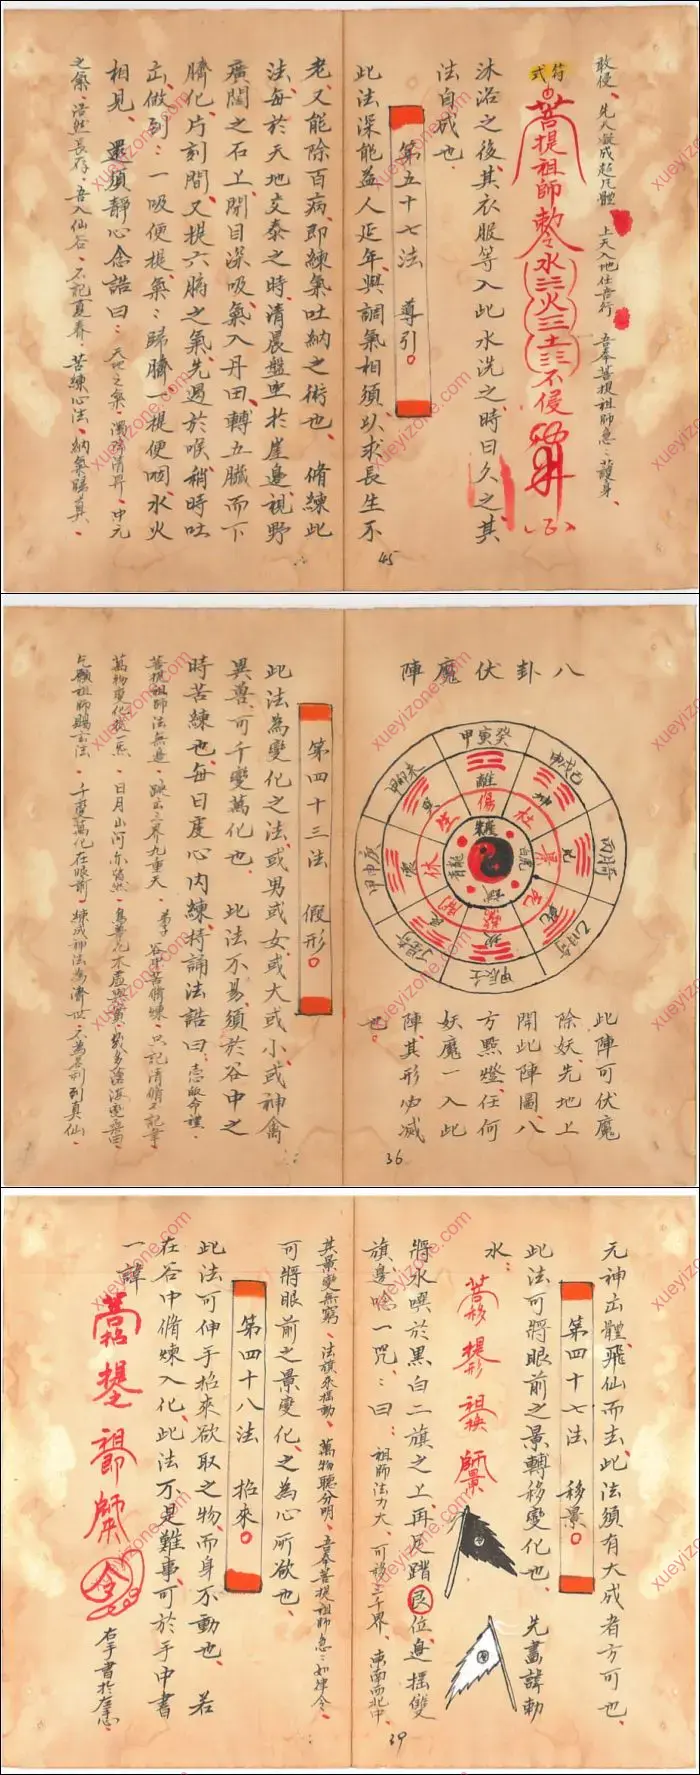 敢侵、先天凝成超凡體 上天入地任吾行 吾奉菩提祖師急:護身、
符式
菩提祖師勅令水火土不侵
沐浴之後、其衣服等入此水洗之、時日久之、其
法自成也、
第五十七法 導引。
此法深能益人延年、與調氣相須、以求長生不
老、又能除百病、即練氣吐納之術也、 脩練此
法、每於天地交泰之時、清晨盤坐於崖邊視野
廣闊之石上、閉目深吸、氣入丹田、轉五臟而下
臍化、片刻間、又提六腑之氣、先過於喉、稍時吐
出、做到:一吸便提、氣:歸臍、一提便咽、水火
相見、 還須靜心念誥曰:天地之氣、濁降清昇、中元
之氣、浩然長存、吾入仙谷、不記夏春、苦練心法、納氣歸真、
45
八卦伏魔陣
甲寅癸
離
傷
杜
坤
景
死
乾
生
巽
休
震
坎
甲辰壬
青龍
白虎
此陣可伏魔
除妖、先地上
開此陣圖、八
方點燈、任何
妖魔一入此
陣、其形必滅
也。
第四十三法 假形。
此法為變化之法、或男或女、或大或小、或神禽
異獸、可千變萬化也、 此法不易、須於谷中之
時苦練也、每日虔心內練、持誦法誥曰:志皈命禮、
菩提祖師法無邊、跳出三界九重天、弟子谷中苦脩練、只記清脩不記年、
萬物變化從一炁、日月山河亦皆然、鳥獸花木虛與實、幾多滄海變桑田、
乞願祖師賜玄法、千變萬化在眼前、煉成神法為濟世、不為名利到真仙、
36
元神出體、飛仙而去、此法須有大成者方可也、
第四十七法 移景。
此法可將眼前之景轉移變化也、 先畫諱勅
水:
菩移 提形 祖換 師景
將水噀於黑白二旗之上、再足踏艮位、邊搖雙
旗、邊唸一咒:曰:祖師法力大、可移三千界、東南西北中、
其景變無窮、法旗來搖動、萬物聽分明、吾奉菩提祖師急:如律令、
可將眼前之景變化、之為心所欲也、
第四十八法 招來。
此法可伸手招來欲取之物、而身不動也、 若
在谷中脩煉入化、此法不是難事、可於手中書
一諱
菩招 提 祖 師來 令 右手書於左手心、
39
xueyizone.com